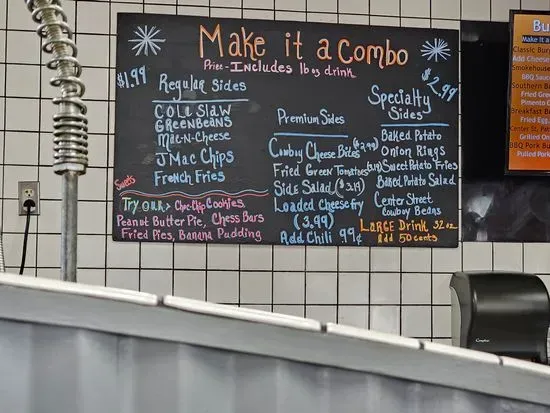 Make it a Combo
Price - Includes 16 oz drink
$1.99
Regular Sides
Cole Slaw
Green Beans
Mac-N-Cheese
JMac Chips
French Fries
Sweets
Try our: Choc-Chip Cookies
Peanut Butter Pie, Chess Bars
Fried Pies, Banana Pudding
Premium Sides
Cowboy Cheese Bites
Fried Green Tomatoes
Side Salad ($3.19)
Loaded Cheese fry
(3.99)
Add Chili 99¢
$2.99
Specialty
Sides
Baked Potato
Onion Rings
Sweet Potato Fries
Baked Potato Salad
Center Street
Cowboy Beans
LARGE Drink 32 oz
Add 50 cents
Bu
Make it a
Classic Burg
Add Cheese
Smokehouse
BBQ Sauc
Southern B
Fried Gree
Pimento C
Breakfast B
Fried Egg
Center St. Pa
Grilled On
BBQ Pork Bu
Pulled Pork